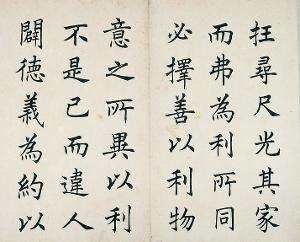 枉尋尺光其家
而弗為利所同
必擇善以利物
意之所異以利
不是已而違人
闢德義為約以